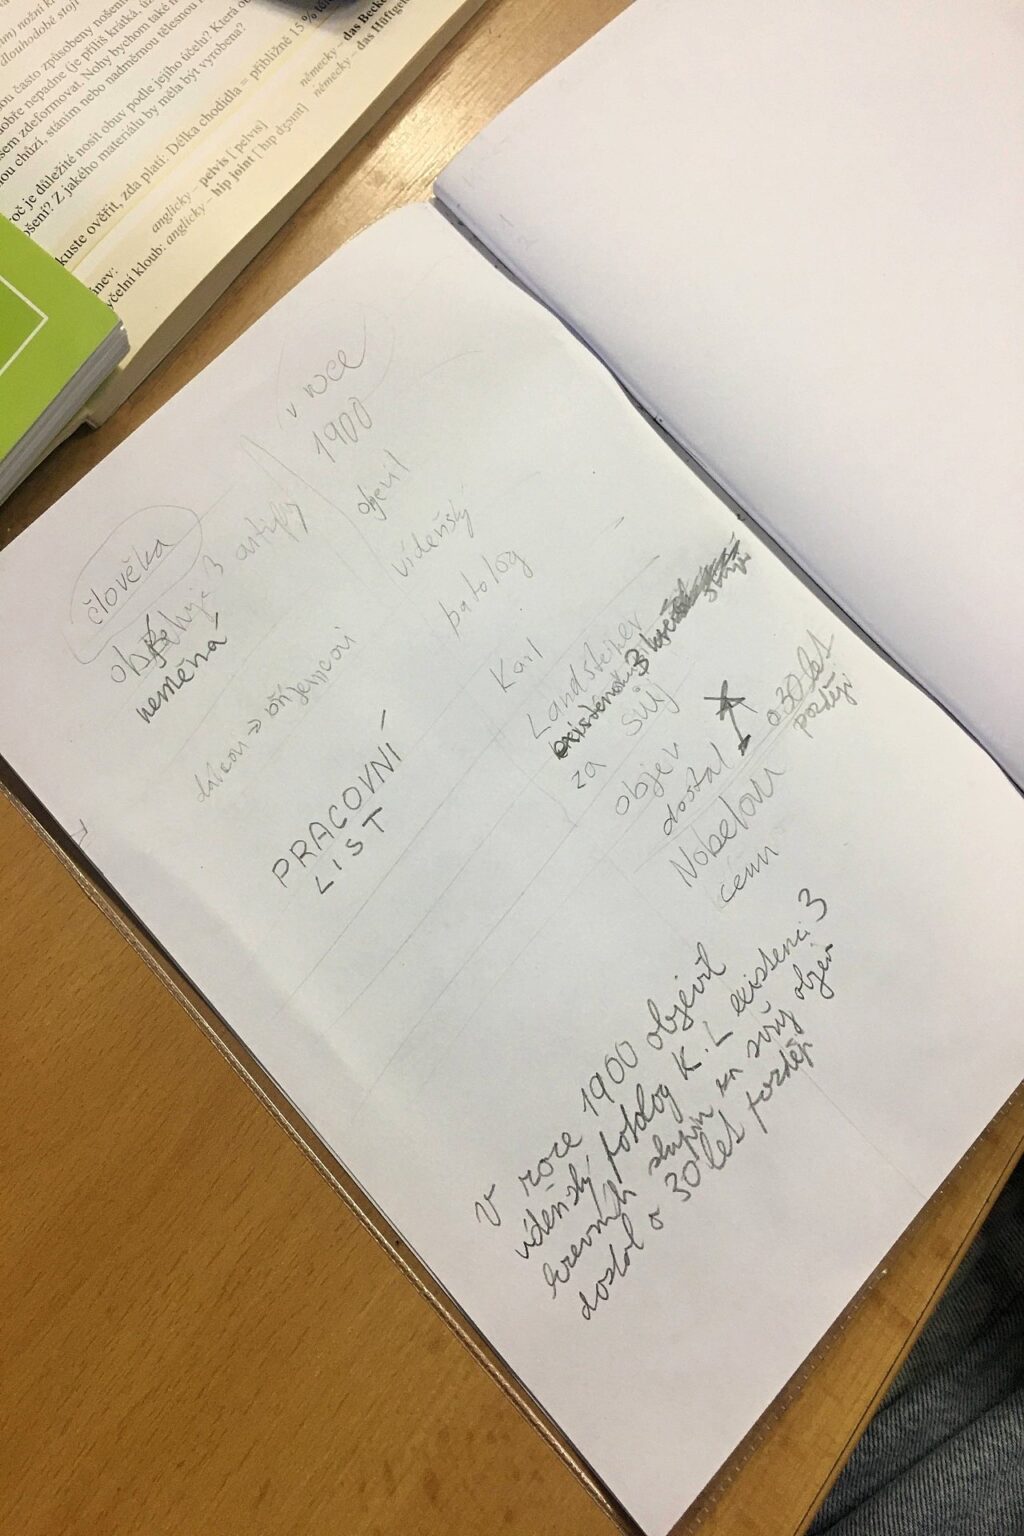 dlouhodobě stojí
ou často způsobeny nošení
obře nepadne (je příliš krátká, úz
sem zdeformovat. Nohy bychom také n
ou chůzí, stáním nebo nadměrnou tělesnou n
oč je důležité nosit obuv podle jejího účelu? Která ob
ošení? Z jakého materiálu by měla být vyrobena?
kuste ověřit, zda platí: Délka chodidla = přibližně 15 % těle
ánev: anglicky – pelvis [ pelvis] německy – das Becke
yčelní kloub: anglicky – hip joint [ hɪp dʒɔɪnt] německy – das Hüftgele
v roce
1900
objevil
vídeňský
patolog
Karl
Landsteiner
existenci 3
za svůj
objev
dostal o 30 let
později
Nobelovu
cenu
člověka
3
neměná
dárcov → příjemcovi
PRACOVNÍ
LIST
V roce 1900 objevil
vídeňský patolog K. L existenci 3
krevních skupin za svůj objev
dostal o 30 let později